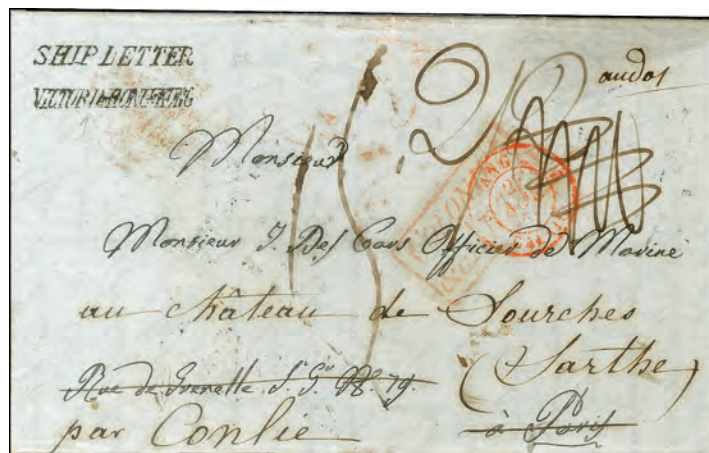 SHIP LETTER
VICTORIA HONG-KONG
au dos
Monsieur
Monsieur J. Des Cars Officier de Marine
au château de Sourches
(Sarthe)
Rue de Grenelle S. Gn. No. 79.
à Paris
par Conlie